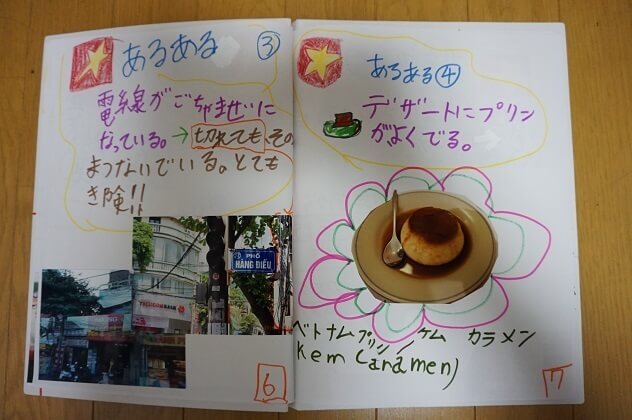 あるある ③
電線がごちゃまぜに
なっている。→切れても、その
まつないでいる。とても
き険!!
PHỐ
HÀNG ĐIẾU
TECHCOMBANK
6
あるある④
デザートにプリン
がよくでる。
ベトナムプリン/ケム カラメン
Kem Caramen)
7